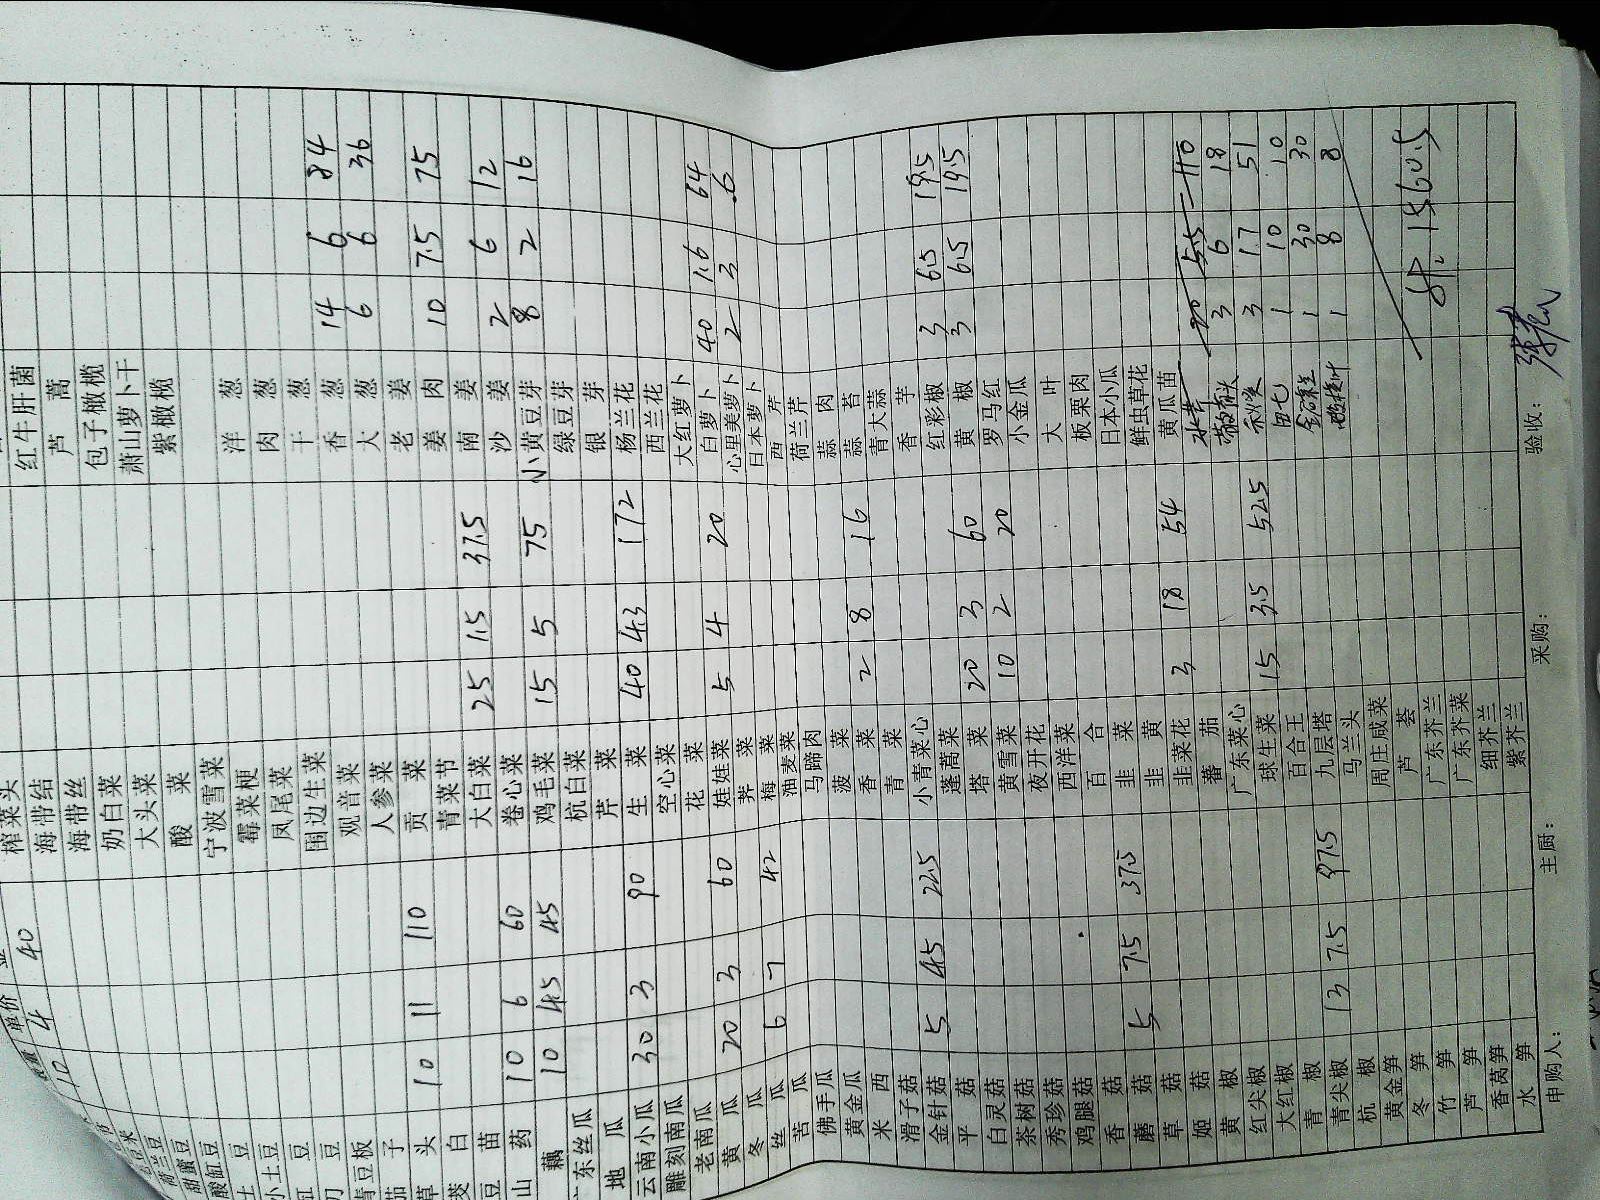 数量 单价
10 4 40 榨菜头
海带结 红牛肝菌
海带丝 芦蒿
荷兰豆 奶白菜 包子橄榄
甜蜜豆 大头菜 萧山萝卜干
酸缸豆 酸菜 紫橄榄
土豆 宁波雪菜
小土豆 霉菜梗 洋葱
豇豆 凤尾菜 肉葱
刀豆 围边生菜 干葱
青豆板 观音菜 香葱 14 6 84
茄子 人参菜 大葱 6 6 36
草头 10 11 110 贡菜 老姜
茭白 青菜节 姜肉 10 7.5 75
豆苗 大白菜 25 1.5 37.5 南姜
山药 10 6 60 卷心菜 沙姜 2 6 12
藕 10 4.5 45 鸡毛菜 15 5 75 小黄豆芽 8 2 16
广东丝瓜 杭白菜 绿豆芽
地瓜 芹菜 银芽
云南小瓜 30 3 90 生菜 40 4.3 172 杨兰花
雕刻南瓜 空心菜 西兰花
老南瓜 花菜 大红萝卜
黄瓜 20 3 60 娃娃菜 5 4 20 白萝卜 40 1.6 64
冬瓜 荠菜 心里美萝卜 2 3 6
丝瓜 6 7 42 梅菜 日本萝卜
苦瓜 油麦菜 西芹
佛手瓜 马蹄肉 荷兰芹
黄金瓜 菠菜 蒜肉
米西 香菜 2 8 16 蒜苔
滑子菇 青菜 青大蒜
金针菇 5 4.5 22.5 小青菜心 香芋
平菇 蓬蒿菜 红彩椒 3 6.5 19.5
白灵菇 塔菜 20 3 60 黄椒 3 6.5 19.5
茶树菇 黄雪菜 10 2 20 罗马红
秀珍菇 夜开花 小金瓜
鸡腿菇 西洋菜 大叶
香菇 百合 板栗肉
蘑菇 5 7.5 37.5 韭菜 日本小瓜
草菇 韭黄 鲜虫草花
姬菇 韭菜花 3 18 54 黄瓜苗
黄椒 蕃茄 水芹 20 5.5 110
红尖椒 广东菜心 3 6 18
大红椒 球生菜 15 3.5 52.5 秋葵 3 17 51
青椒 百合王 1 10 10
青尖椒 13 7.5 97.5 九层塔 1 30 30
杭椒 马兰头 1 8 8
黄金笋 周庄咸菜
冬笋 芦荟
竹笋 广东芥兰 1560.5
芦笋 广东芥菜
香莴笋 细芥兰
水笋 紫芥兰
申购人: 主厨: 采购: 验收: